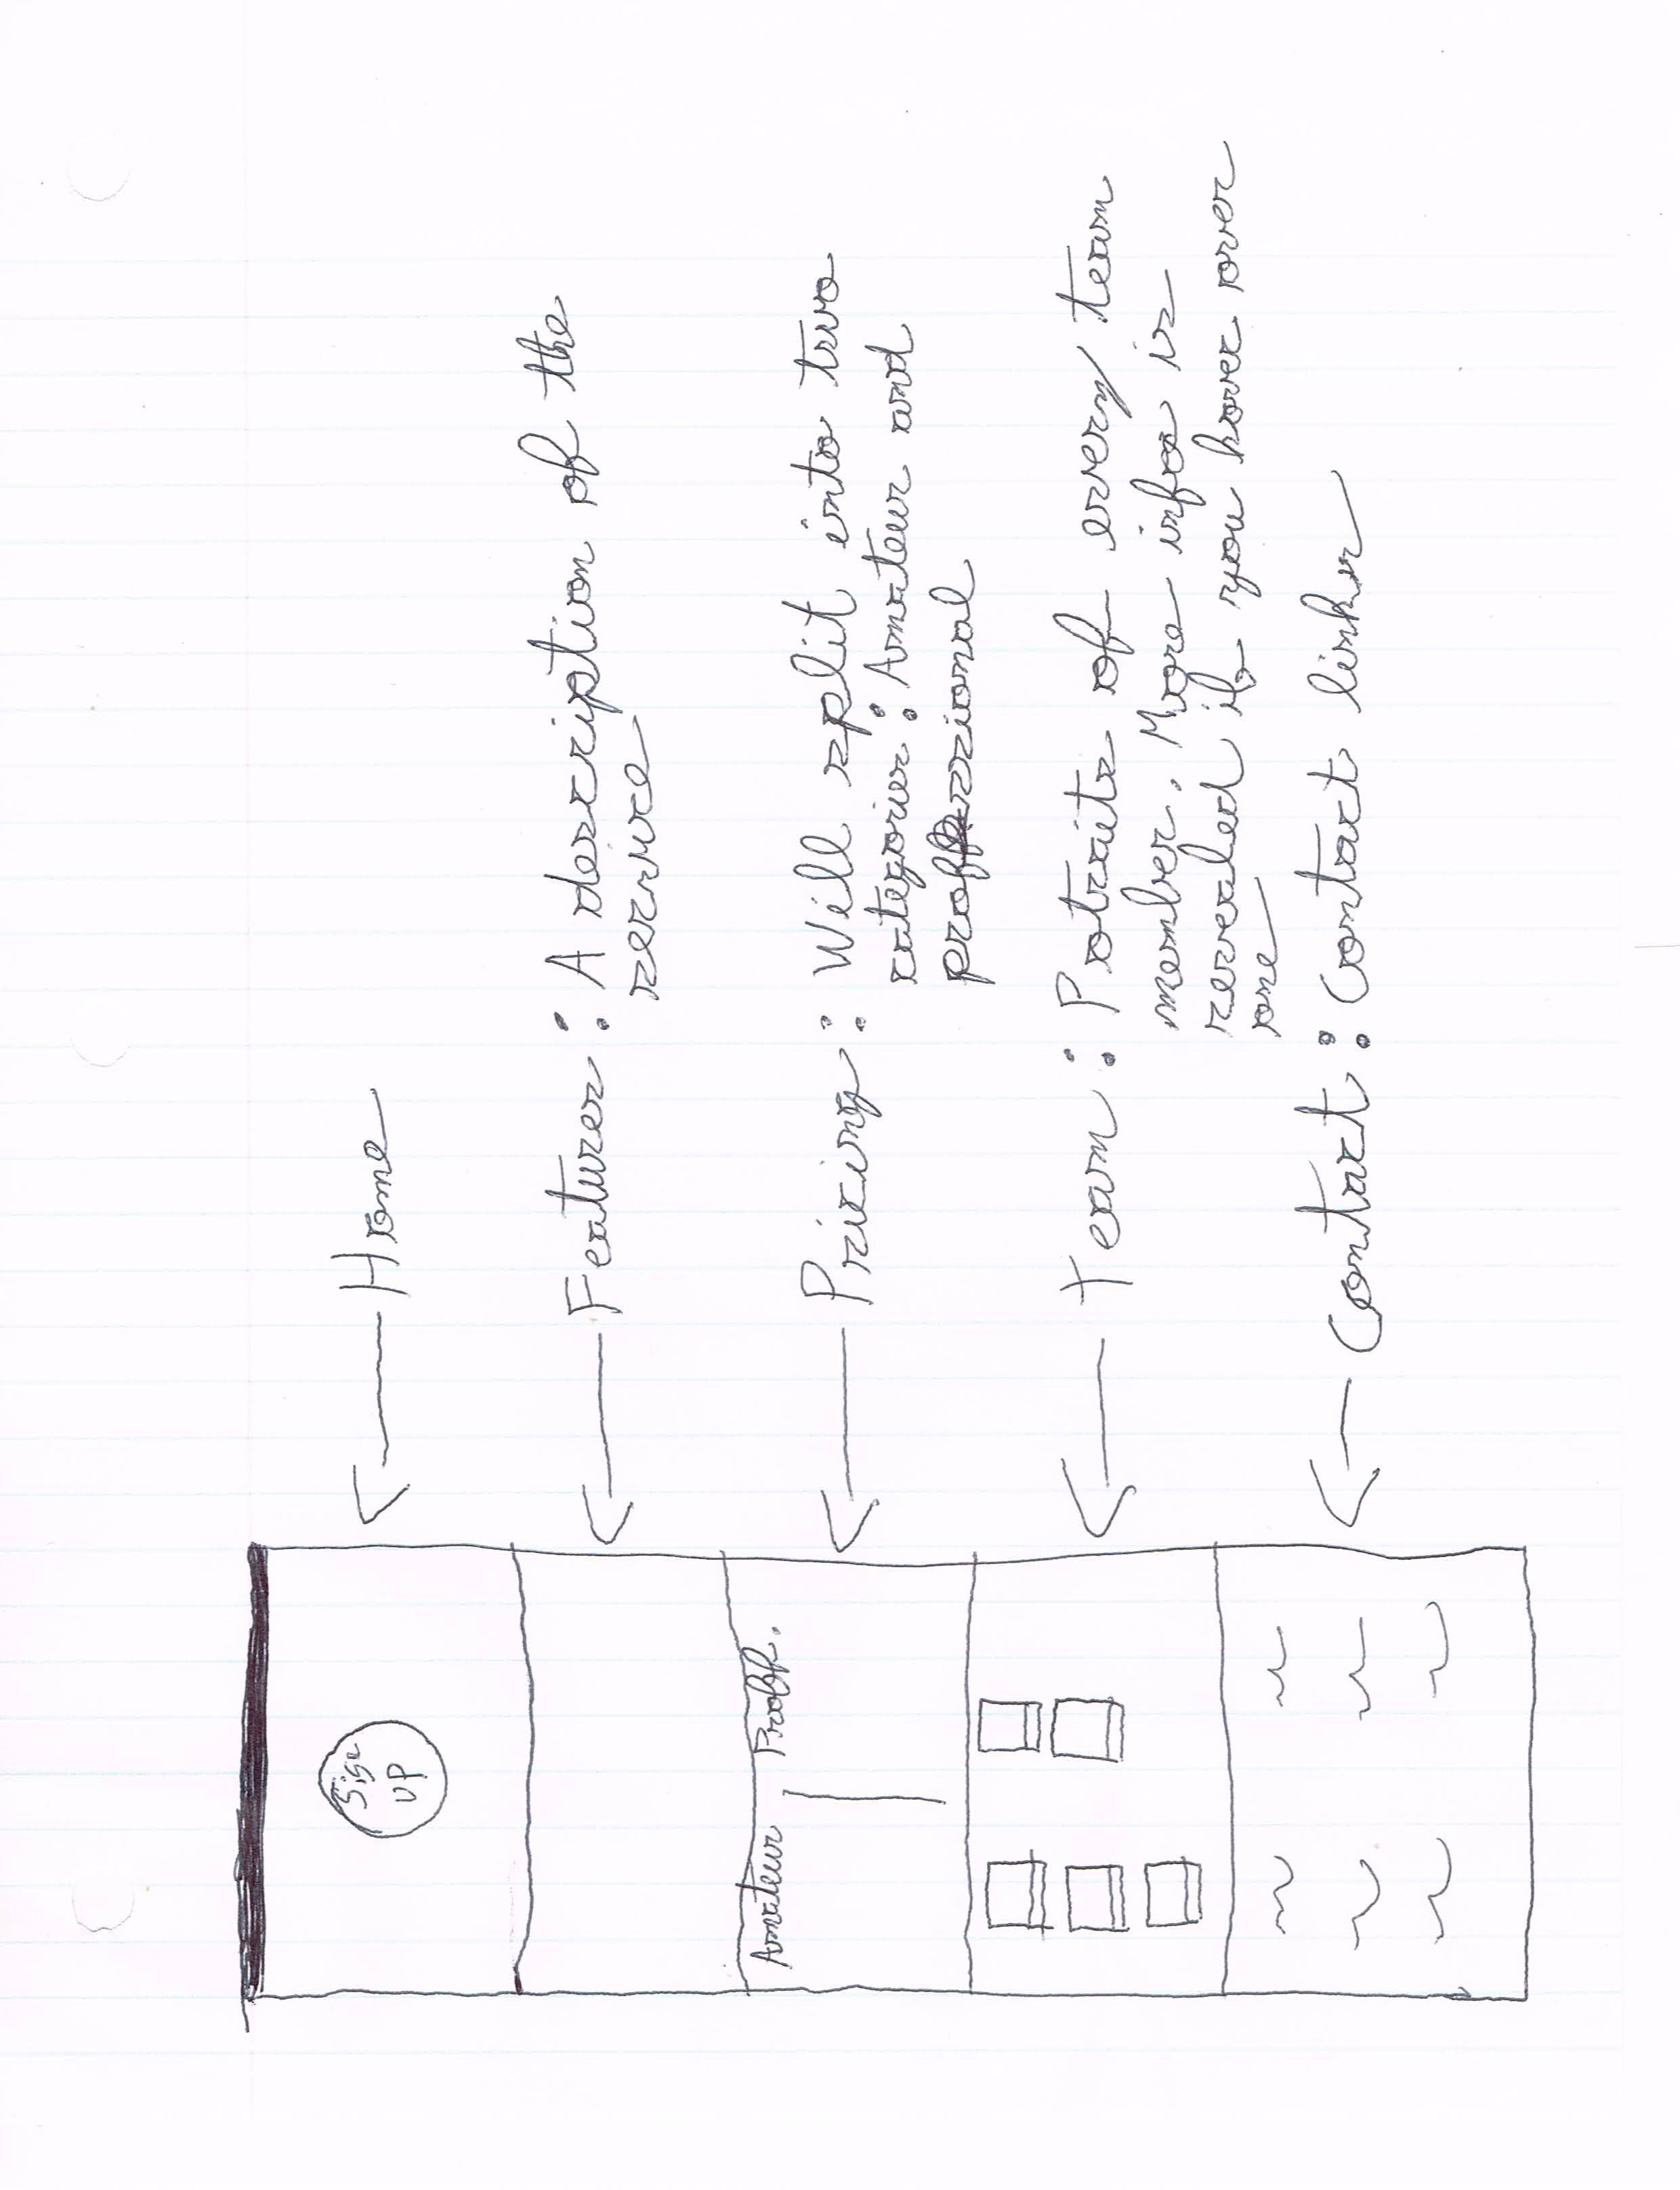 Sign
UP
Home
Features: A description of the
service
Amateur Proff.
Pricing: Will split into two
categories: Amateur and
professional
Team: Potraits of every team
member. More info is
revealed if you hover over
one
Contact: Contact links